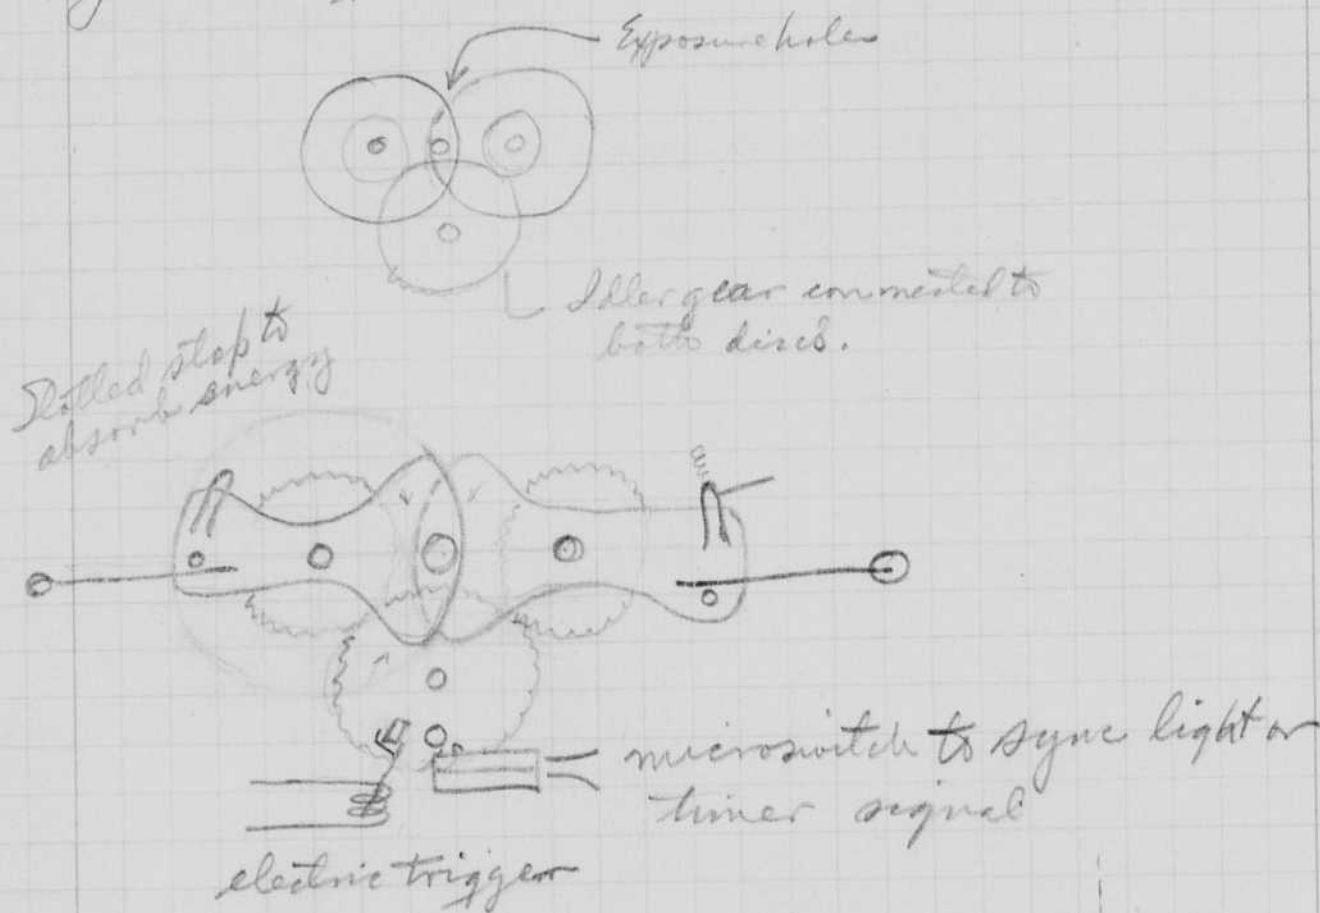 Exposure holes
Idler gear connected to
both discs.
Slotted stop to
absorb energy
microswitch to sync light or
timer signal
electric trigger